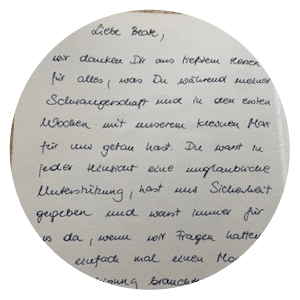 Liebe Beate,
wir danken Dir aus tiefstem Herzen
für alles, was Du während meiner
Schwangerschaft und in den ersten
Wochen mit unserem kleinen Max
für uns getan hast. Du warst in
jeder Hinsicht eine unglaubliche
Unterstützung, hast uns Sicherheit
gegeben und warst immer für
us da, wenn wir Fragen hatten
einfach mal einen